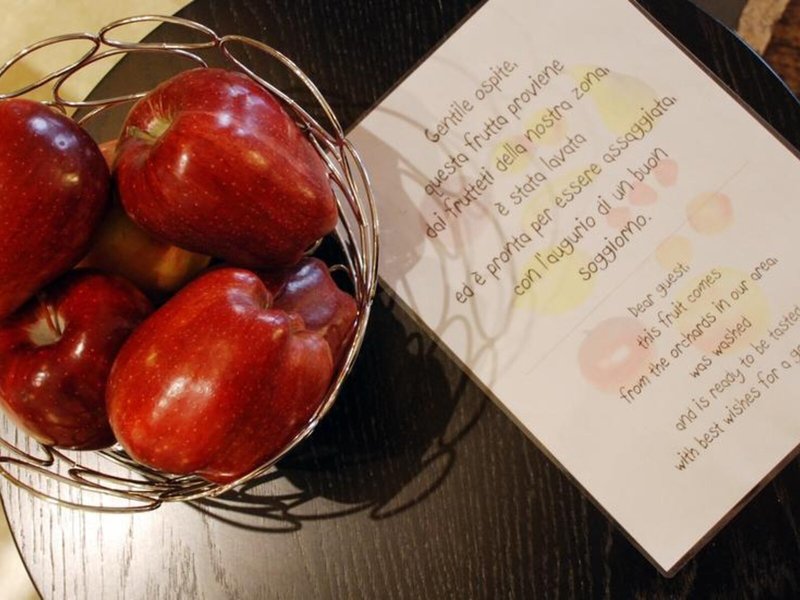 Gentile ospite,
questa frutta proviene
dai frutteti della nostra zona,
è stata lavata
ed è pronta per essere assaggiata,
con l'augurio di un buon
soggiorno.
Dear guest,
this fruit comes
from the orchards in our area,
was washed
and is ready to be tasted
with best wishes for a